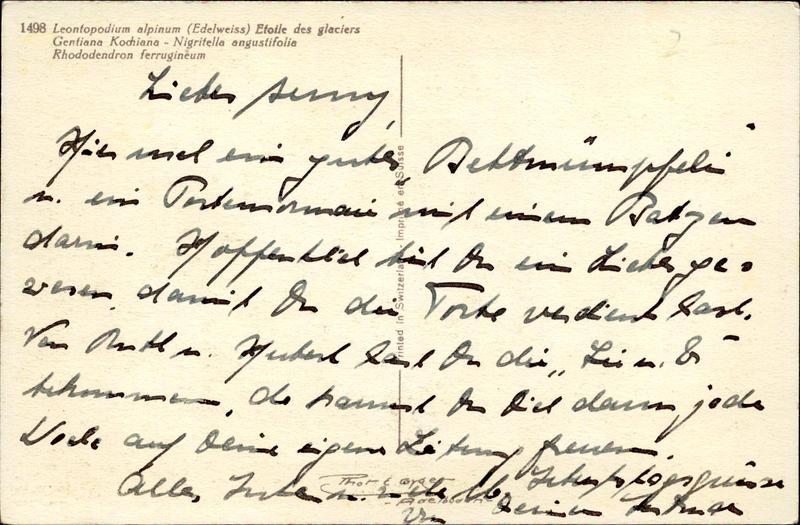 1498 Leontopodium alpinum (Edelweiss) Etoile des glaciers
Gentiana Kochiana - Nigritella angustifolia
Rhododendron ferrugineum
Liebes
Hier mal ein gutes "Bettmümpfeli"
u. ein mit einem Batzen
darin. Hoffentlich bist Du ein Liebes ge-
wesen, damit Du die Torte verdient hast.
Von Ruth u. Hubert hast Du die
bekommen, da kannst Du Dich dann jede
Woche auf Deine eigene Zeitung freuen.
Alles Gute u. viele lb. Geburtstagsgrüsse
von Deiner
Printed in Switzerland - Imprimé en Suisse